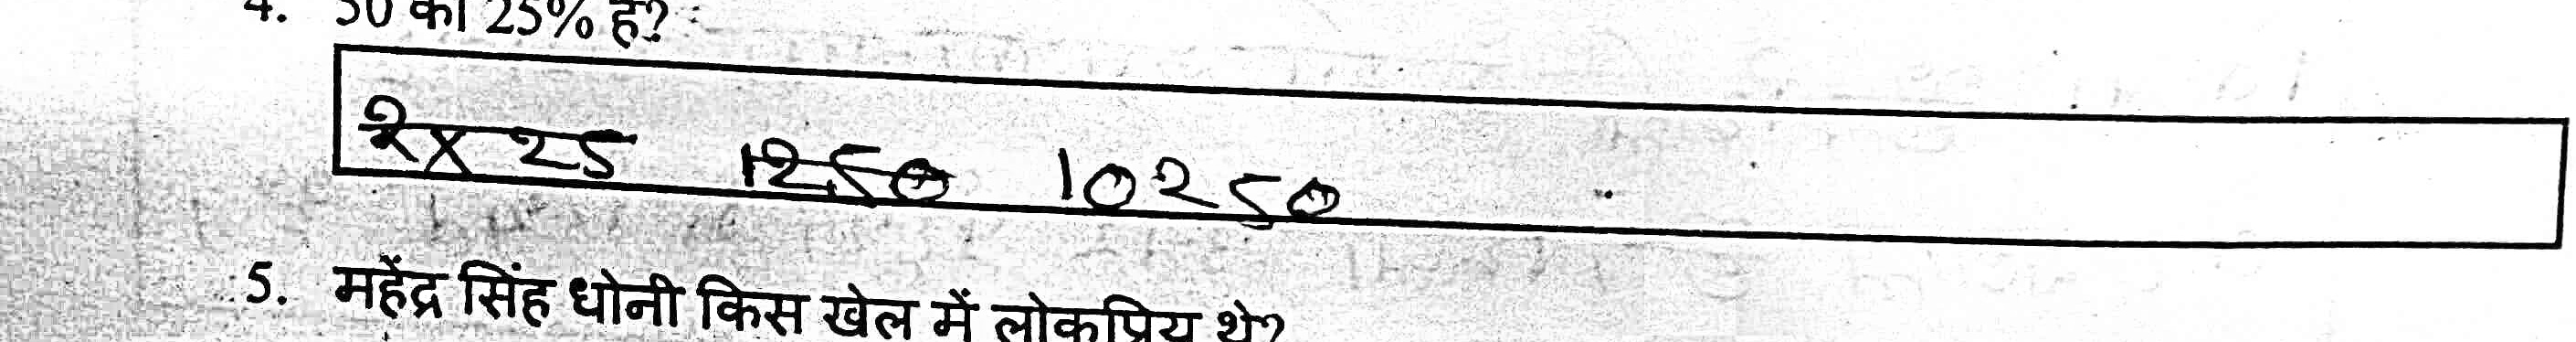 4. 50 का 25% है?
2x 25 1250 10250
5. महेंद्र सिंह धोनी किस खेल में लोकप्रिय थे?